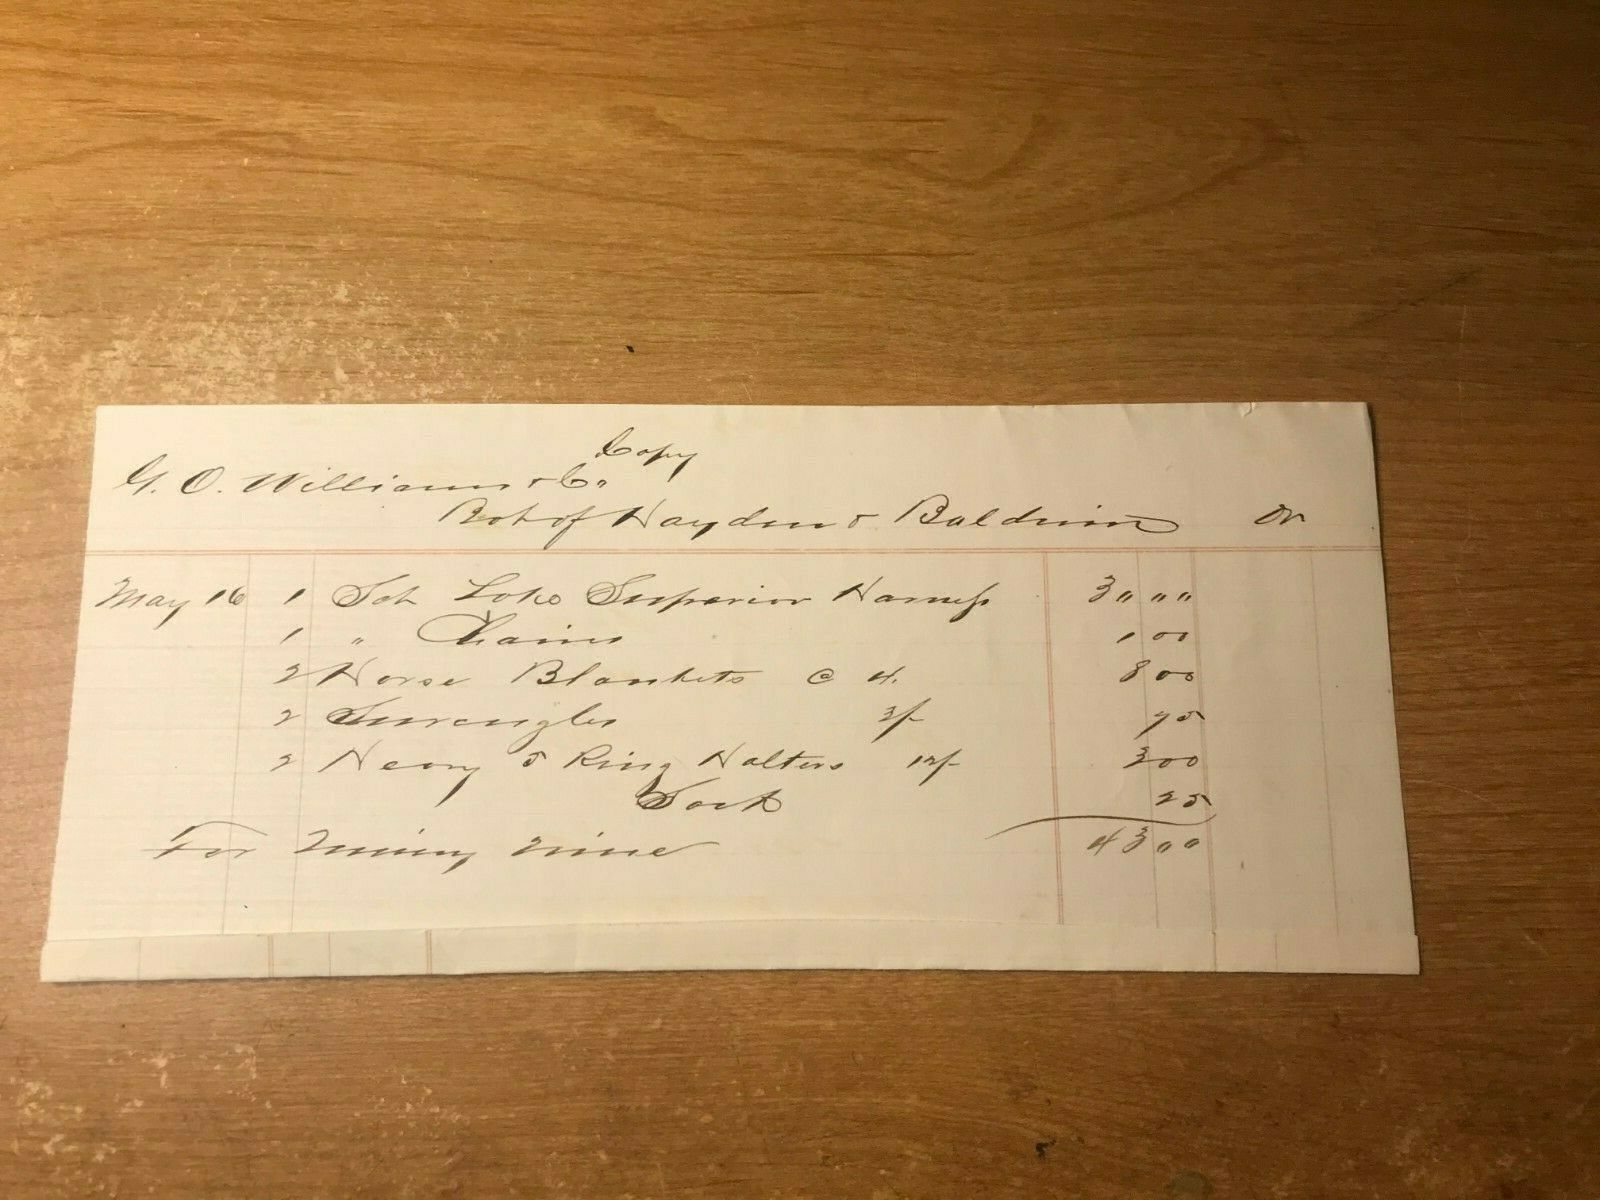 Copy
G. O. Williams & Co.
Bot of Hayden & Baldwin Dr
May 16 1 Set Lake Superior Harness 30 00
1 " Chains 1 00
2 Horse Blankets @ 4. 8 00
2 Surcingles 3/- 75
2 Heavy 5 Ring Halters 12/- 3 00
Sack 25
For Mining Mine 43 00